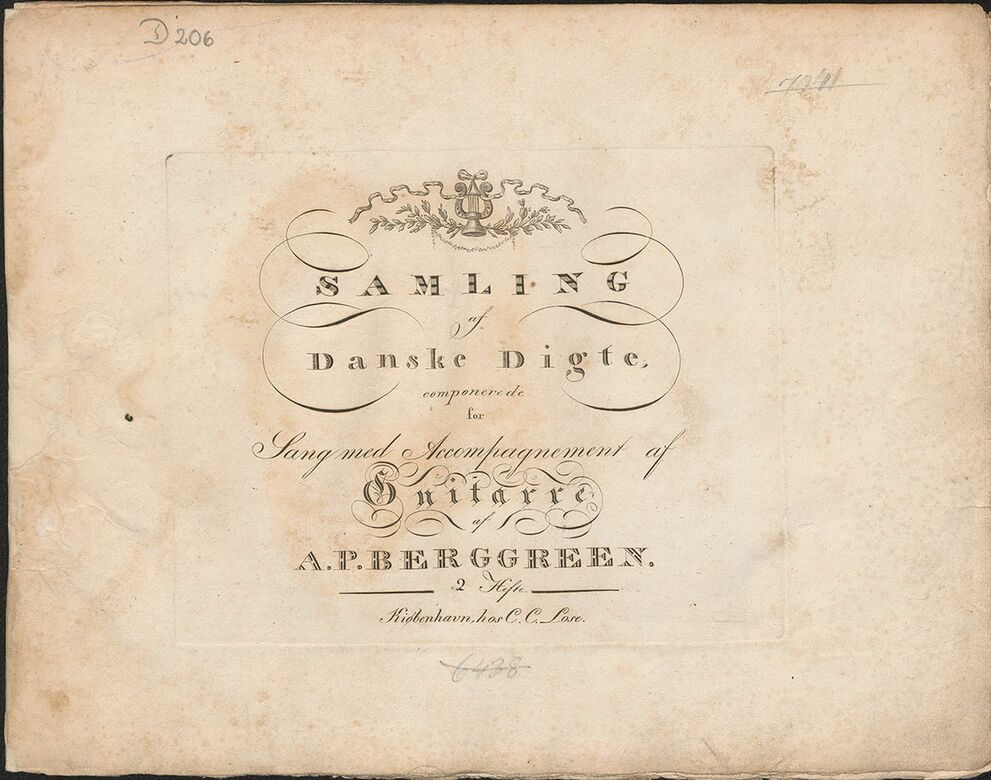 D 206
SAMLING
af
Danske Digte,
componerede
for
Sang med Accompagnement af
Guitarre
af
A.P. BERGGREEN.
2 Hefte.
Kiöbenhavn, hos C. C. Lose.
6438